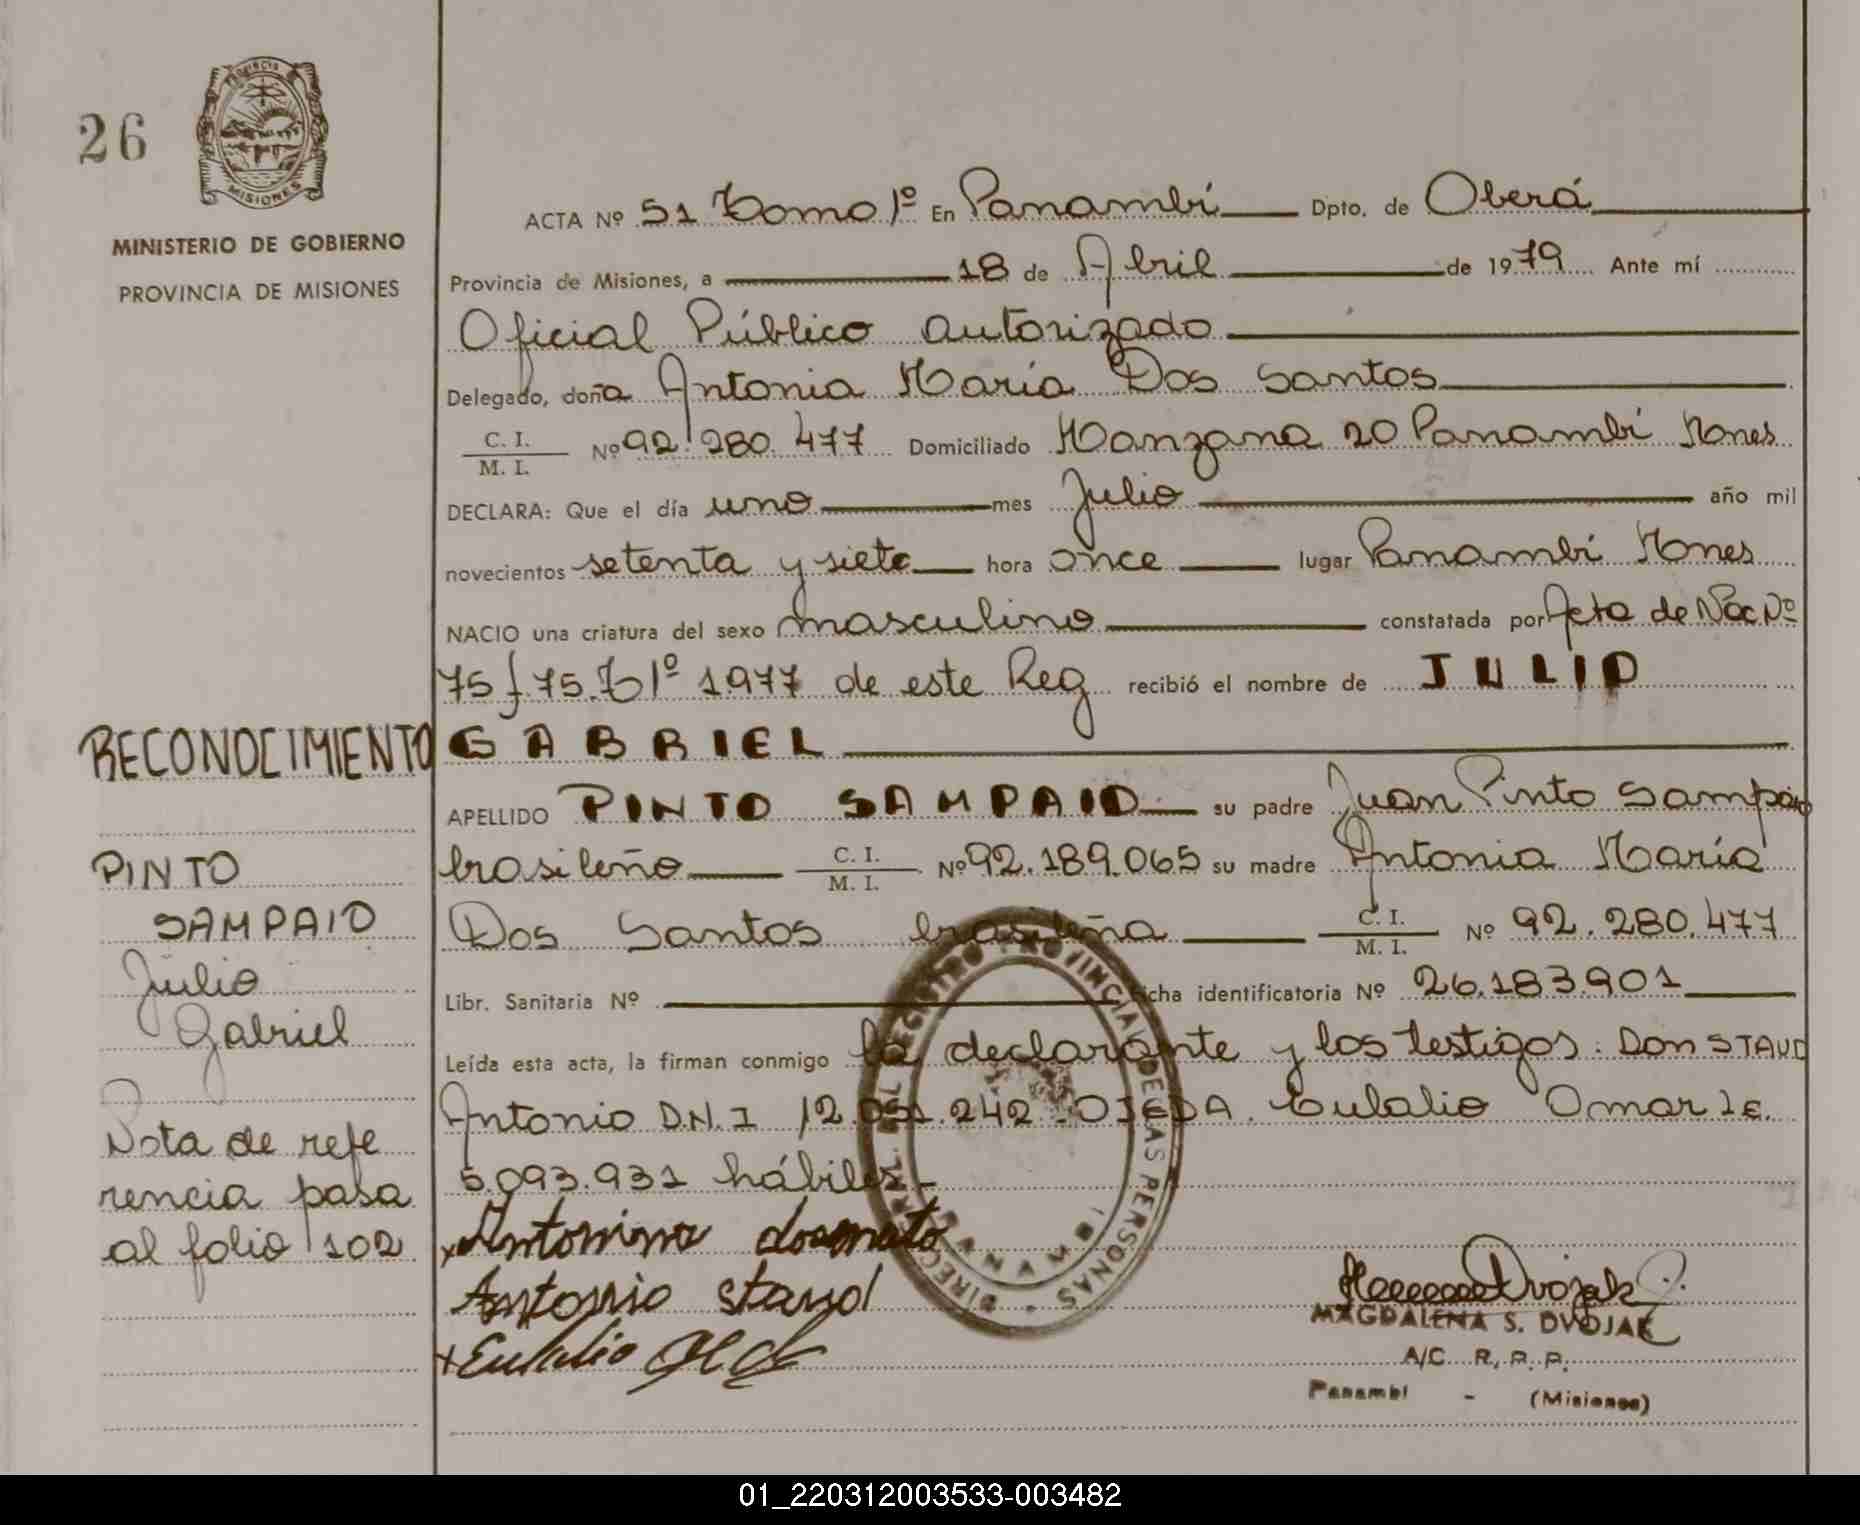 26
PROVINCIA
MISIONES
MINISTERIO DE GOBIERNO
PROVINCIA DE MISIONES
ACTA Nº 51 Tomo 1º En Panambí Dpto. de Oberá
Provincia de Misiones, a 18 de Abril de 1979 Ante mí
Oficial Público autorizado
Delegado, doña Antonia María Dos Santos
C. I.
M. I. Nº 92.280.477 Domiciliado Manzana 20 Panambí Mones
DECLARA: Que el día uno mes Julio año mil
novecientos setenta y siete hora once lugar Panambí Mones
NACIO una criatura del sexo masculino constatada por Acta de Nac Nº
75 f 75. T 1º 1.977 de este Reg recibió el nombre de JULIO
GABRIEL
APELLIDO PINTO SAMPAIO su padre Juan Pinto Sampaio
brasileño C. I. M. I. Nº 92.189.065 su madre Antonia María
Dos Santos brasileña C. I. M. I. Nº 92.280.477
Libr. Sanitaria Nº Ficha identificatoria Nº 26.183.901
Leída esta acta, la firman conmigo la declarante y los testigos: Don STAUD
Antonio D.N.I 12.051.242 - OJEDA. Eulalio Omar L.E.
5.093.931 hábiles -
RECONOCIMIENTO
PINTO
SAMPAIO
Julio
Gabriel
Nota de refe
rencia pasa
al folio 102
Antonio staud
Eulalio
Dvojak
MAGDALENA S. DVOJAK
A/C R. P. P.
Panambí - (Misiones)
REGISTRO PROVINCIAL DE LAS PERSONAS
01_220312003533-003482